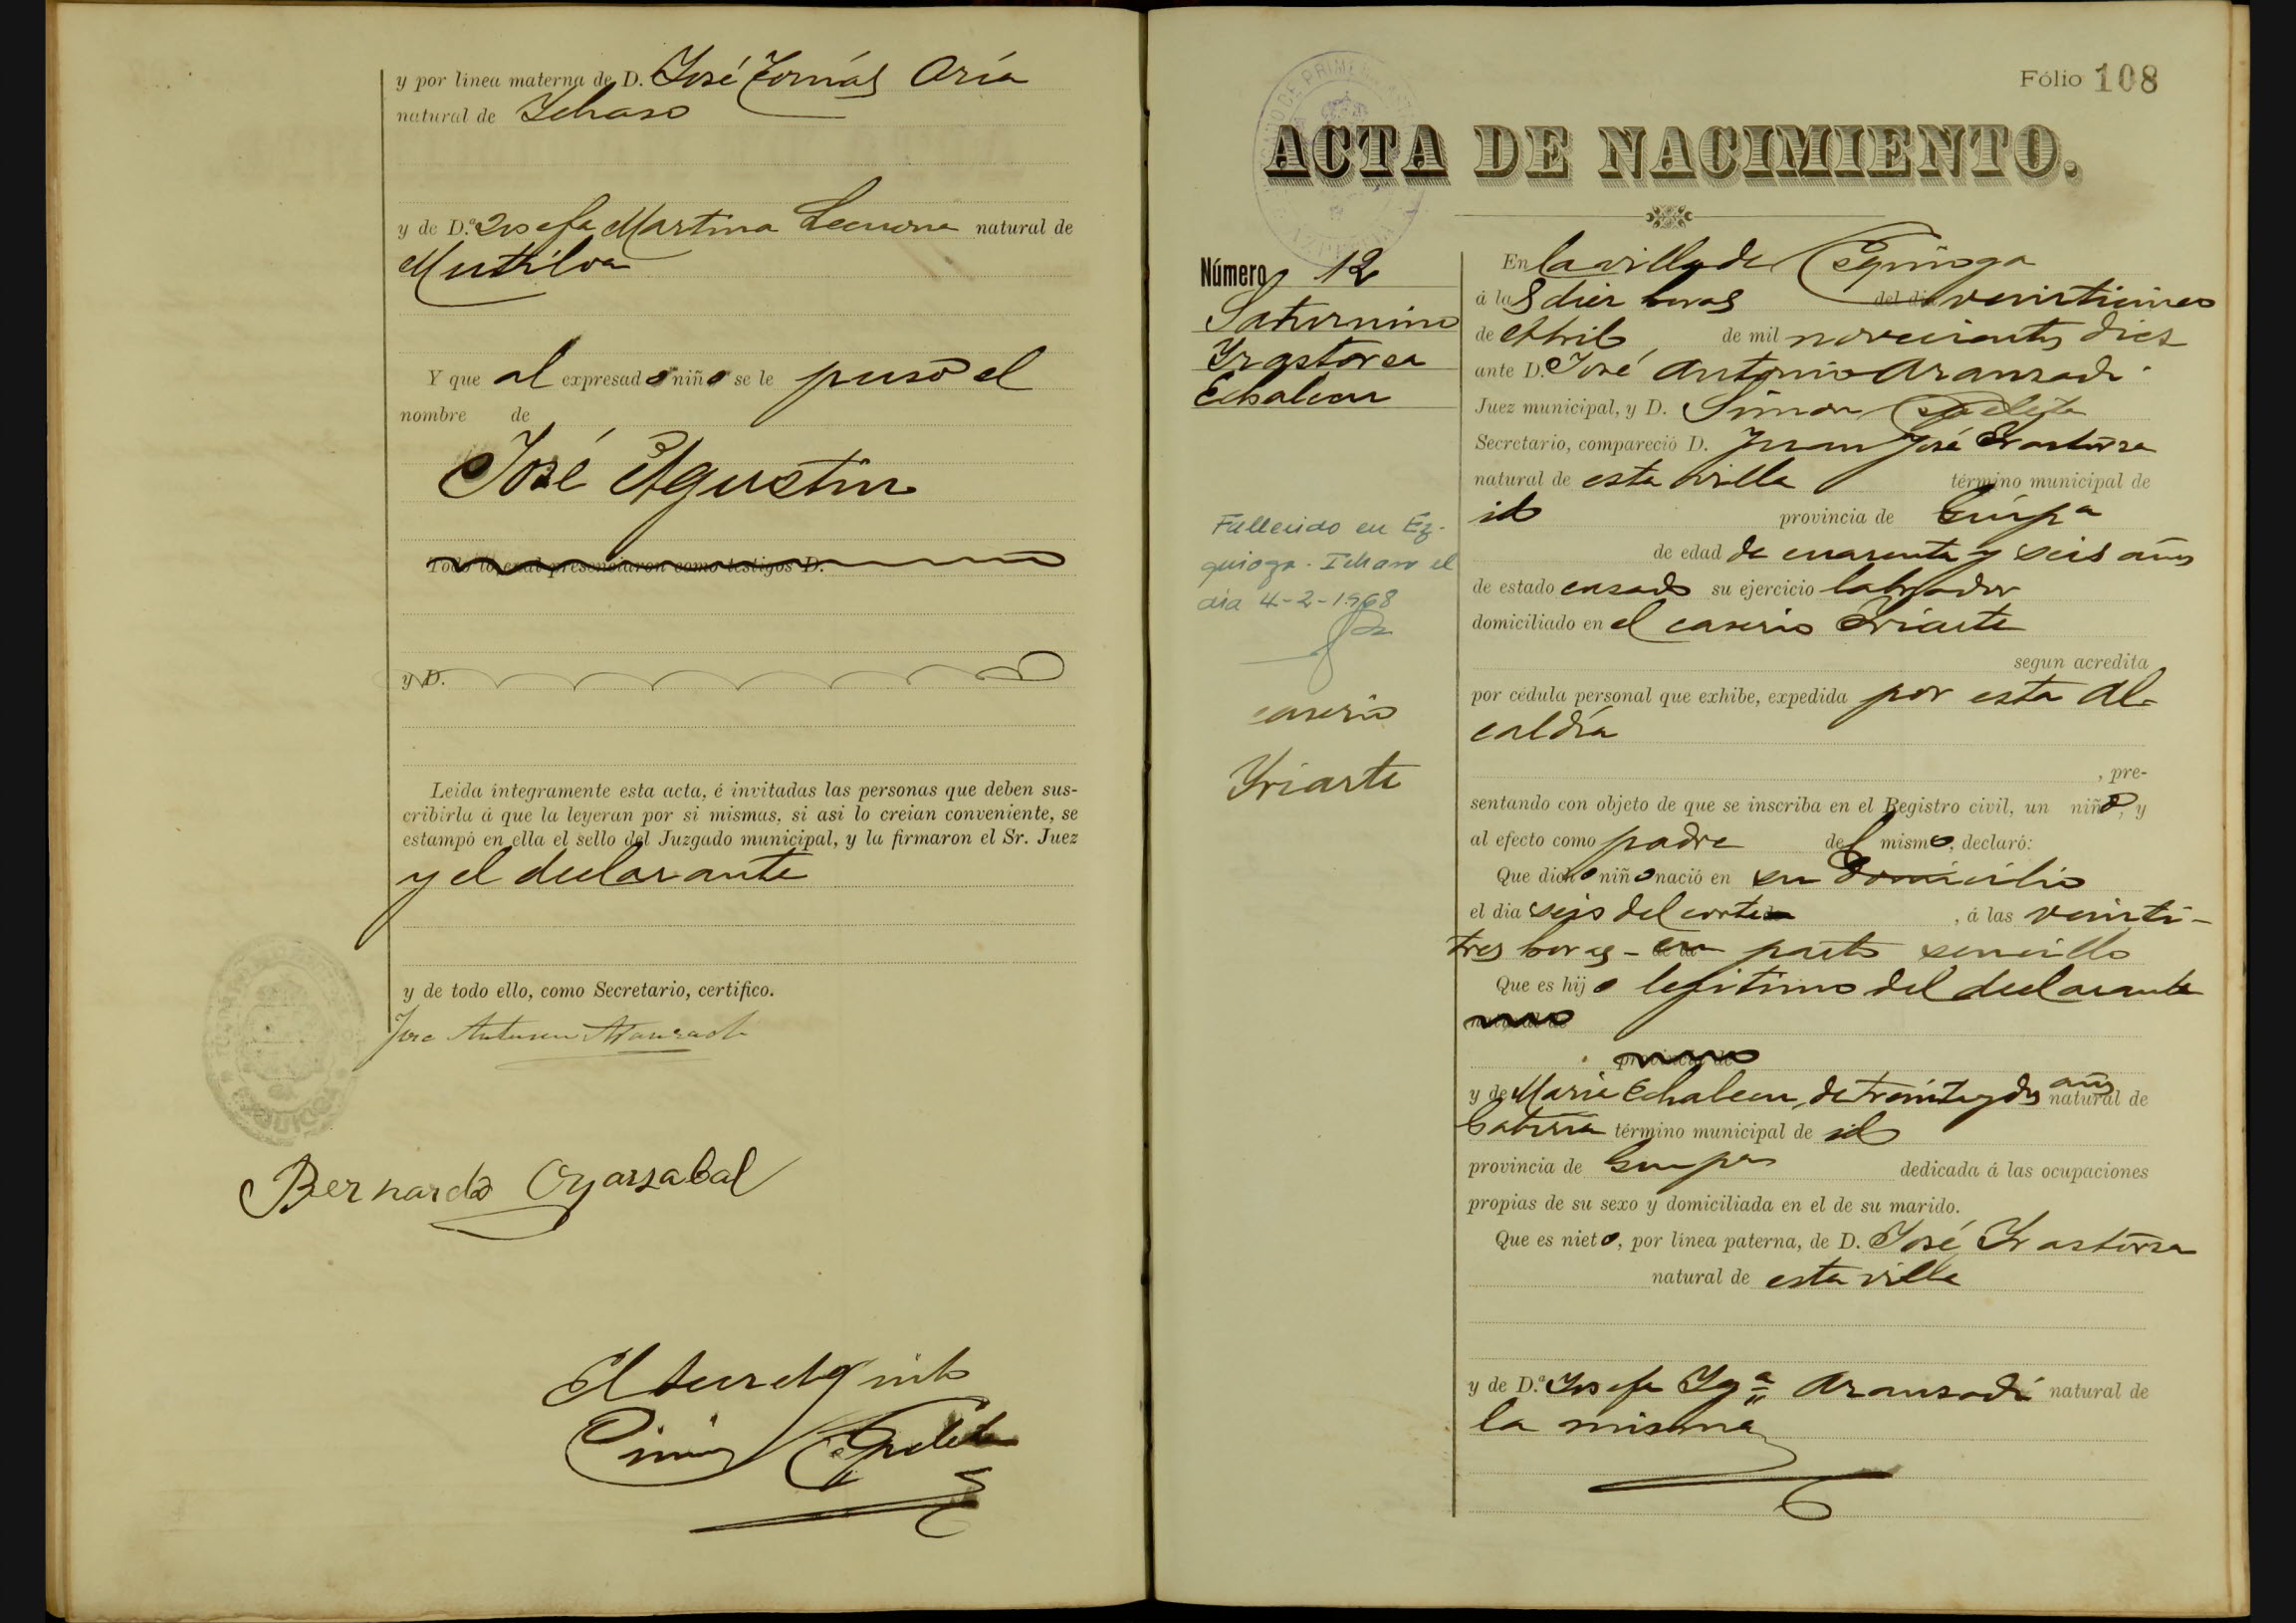 y por línea materna de D. José Tomás Oría
natural de Ichaso
y de D.ª Josefa Martina Lecuona natural de
Mutiloa
Y que al expresado niño se le puso el
nombre de
José Agustin
Todo lo cual presenciaron como testigos D.
y D.
Leida íntegramente esta acta, é invitadas las personas que deben sus-
cribirla á que la leyeran por si mismas, si asi lo creian conveniente, se
estampó en ella el sello del Juzgado municipal, y la firmaron el Sr. Juez
y el declarante
y de todo ello, como Secretario, certifico.
José Antonio Aranzadi
Bernardo Oyarzabal
El Secret.º
Simón Egaleta
Fólio 108
ACTA DE NACIMIENTO.
Número 12
Saturnino
Yrastorza
Echalecu
Fallecido en Ez-
quioga-Ichaso el
día 4-2-1968
caserio
Yriarte
En la villa de Ezquioga
á las diez horas del dia veinticinco
de Abril de mil novecientos diez
ante D. José Antonio Aranzadi
Juez municipal, y D. Simón Egaleta
Secretario, compareció D. Juan José Yrastorza
natural de esta villa término municipal de
id provincia de Guipª
de edad de cuarenta y seis años
de estado casado su ejercicio labrador
domiciliado en el caserio Yriarte
segun acredita
por cédula personal que exhibe, expedida por esta Al-
caldía
, pre-
sentando con objeto de que se inscriba en el Registro civil, un niño, y
al efecto como padre del mismo, declaró:
Que dicho niño nació en su domicilio
el dia seis del corte , á las veinti-
tres horas - en parto sencillo
Que es hijo legitimo del declarante
natural de
provincia de
y de Maria Echalecu, de treinta y dos años natural de
Gabiria término municipal de id
provincia de Guipª dedicada á las ocupaciones
propias de su sexo y domiciliada en el de su marido.
Que es nieto, por línea paterna, de D. José Yrastorza
natural de esta villa
y de D.ª Josefa Ygª Aranzadi natural de
la misma